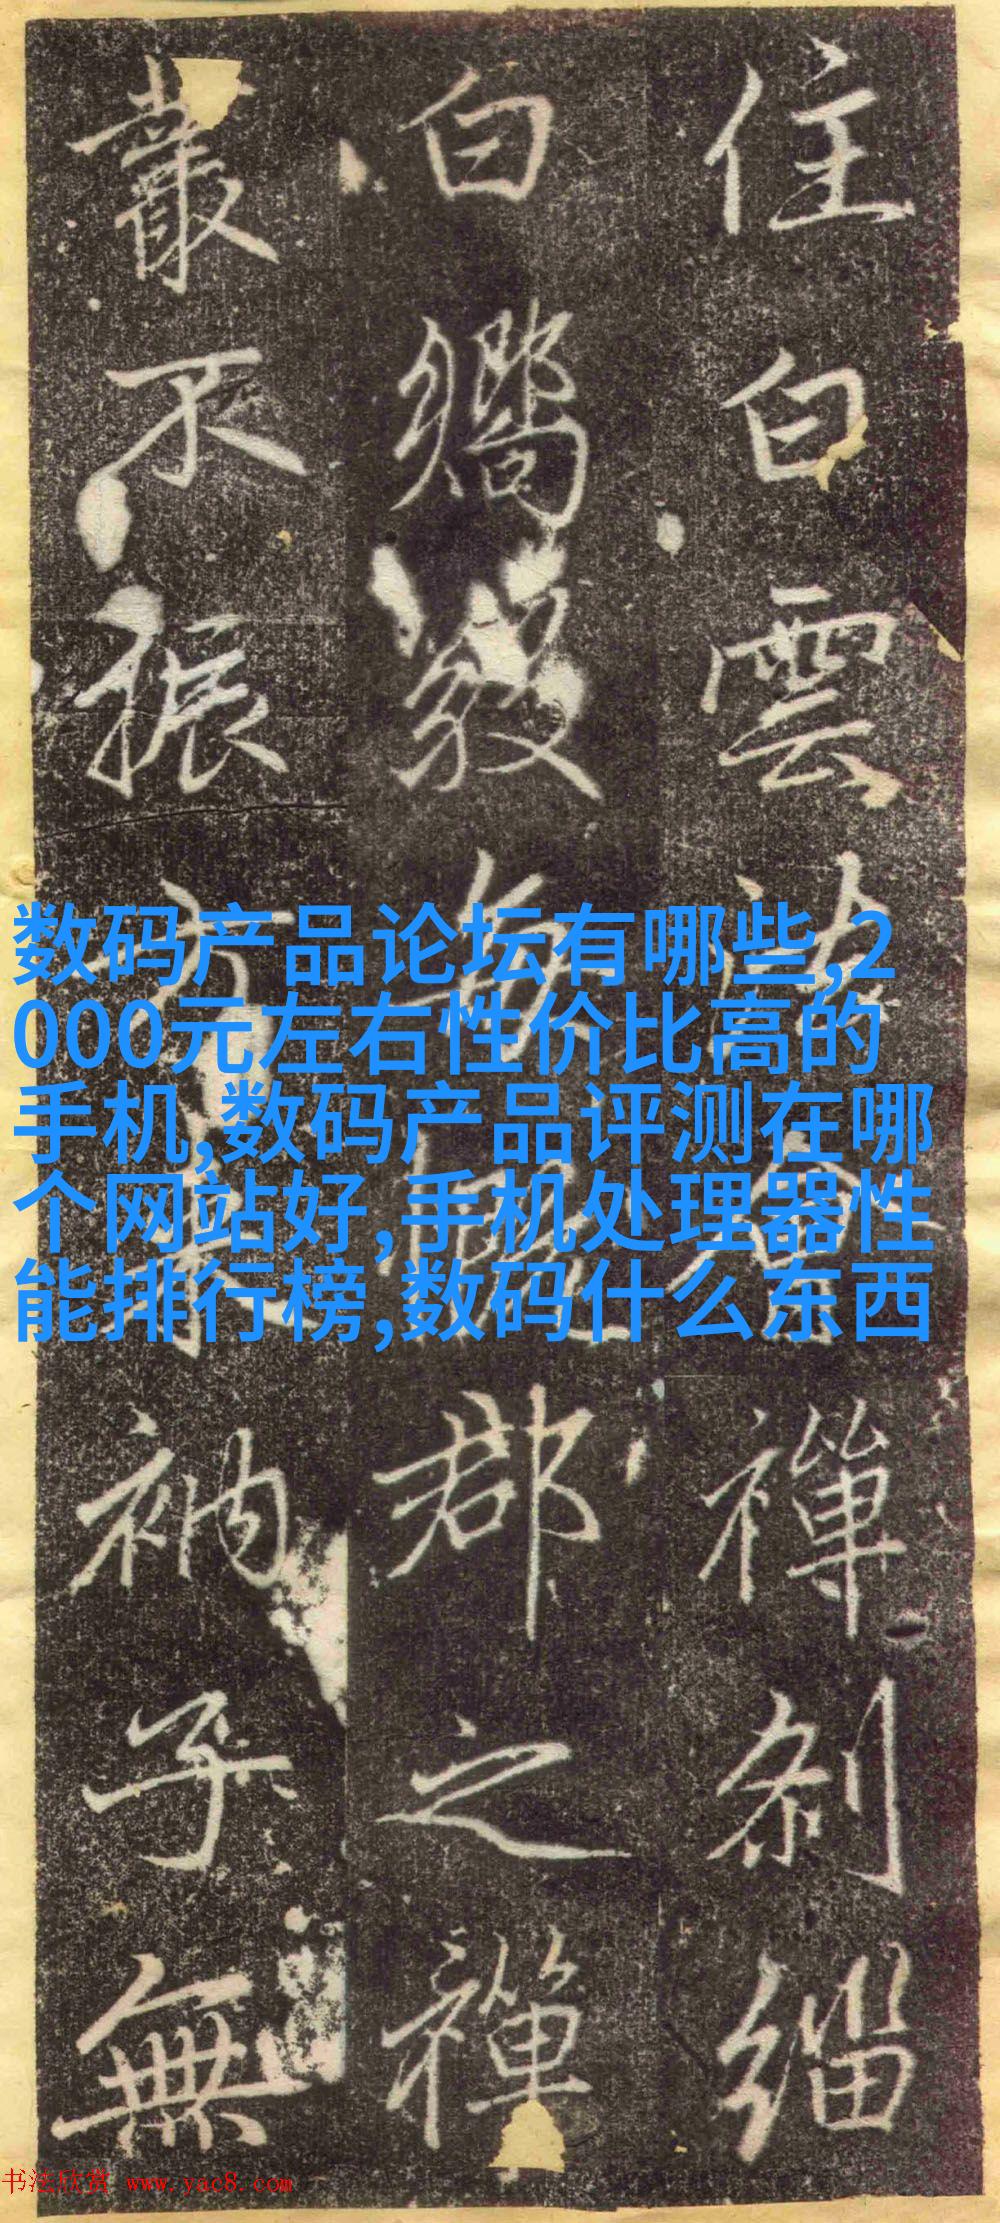 住白雲禪剎緇
白郡之禪
叢不振方來衲子無
数码产品论坛有哪些,2
000元左右性价比高的
手机,数码产品评测在哪
个网站好,手机处理器性
能排行榜,数码什么东西
书法欣赏 www.yac8.com